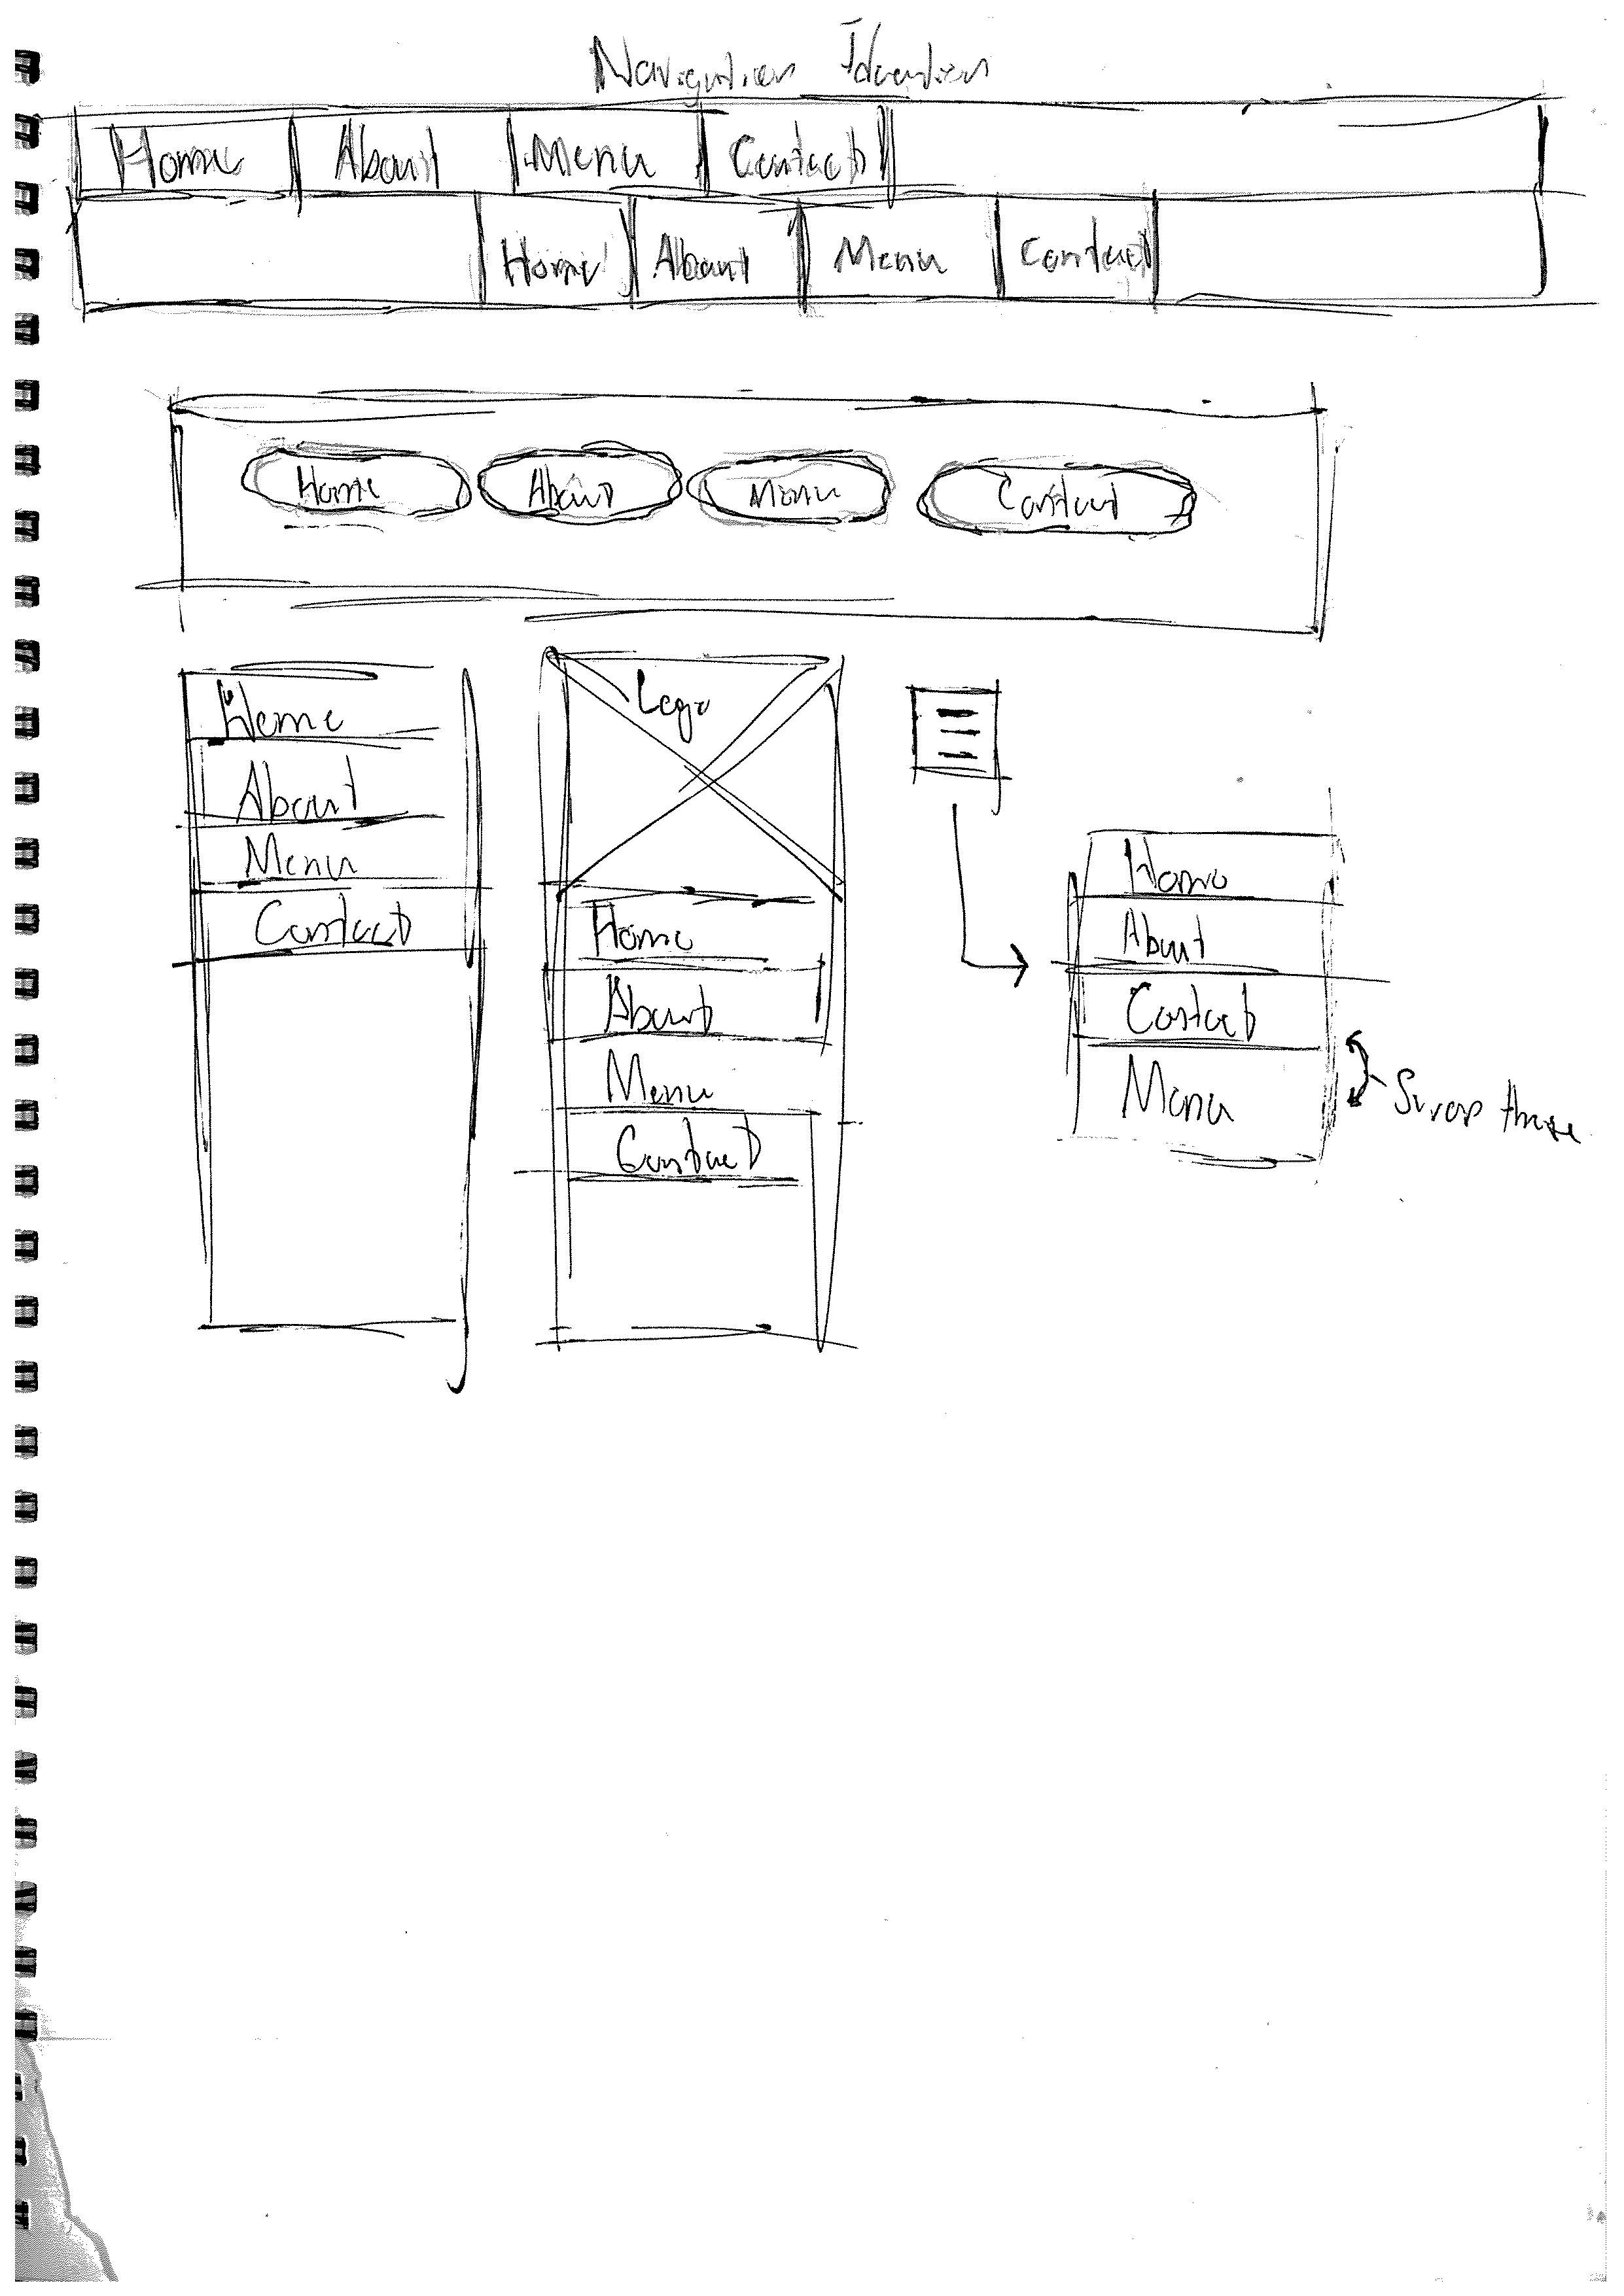 Navigation Ideation
Home About Menu Contact
Home About Menu Contact
Home About Menu Contact
Home
About
Menu
Contact
Logo
Home
About
Menu
Contact
Home
About
Contact
Menu
Swap these